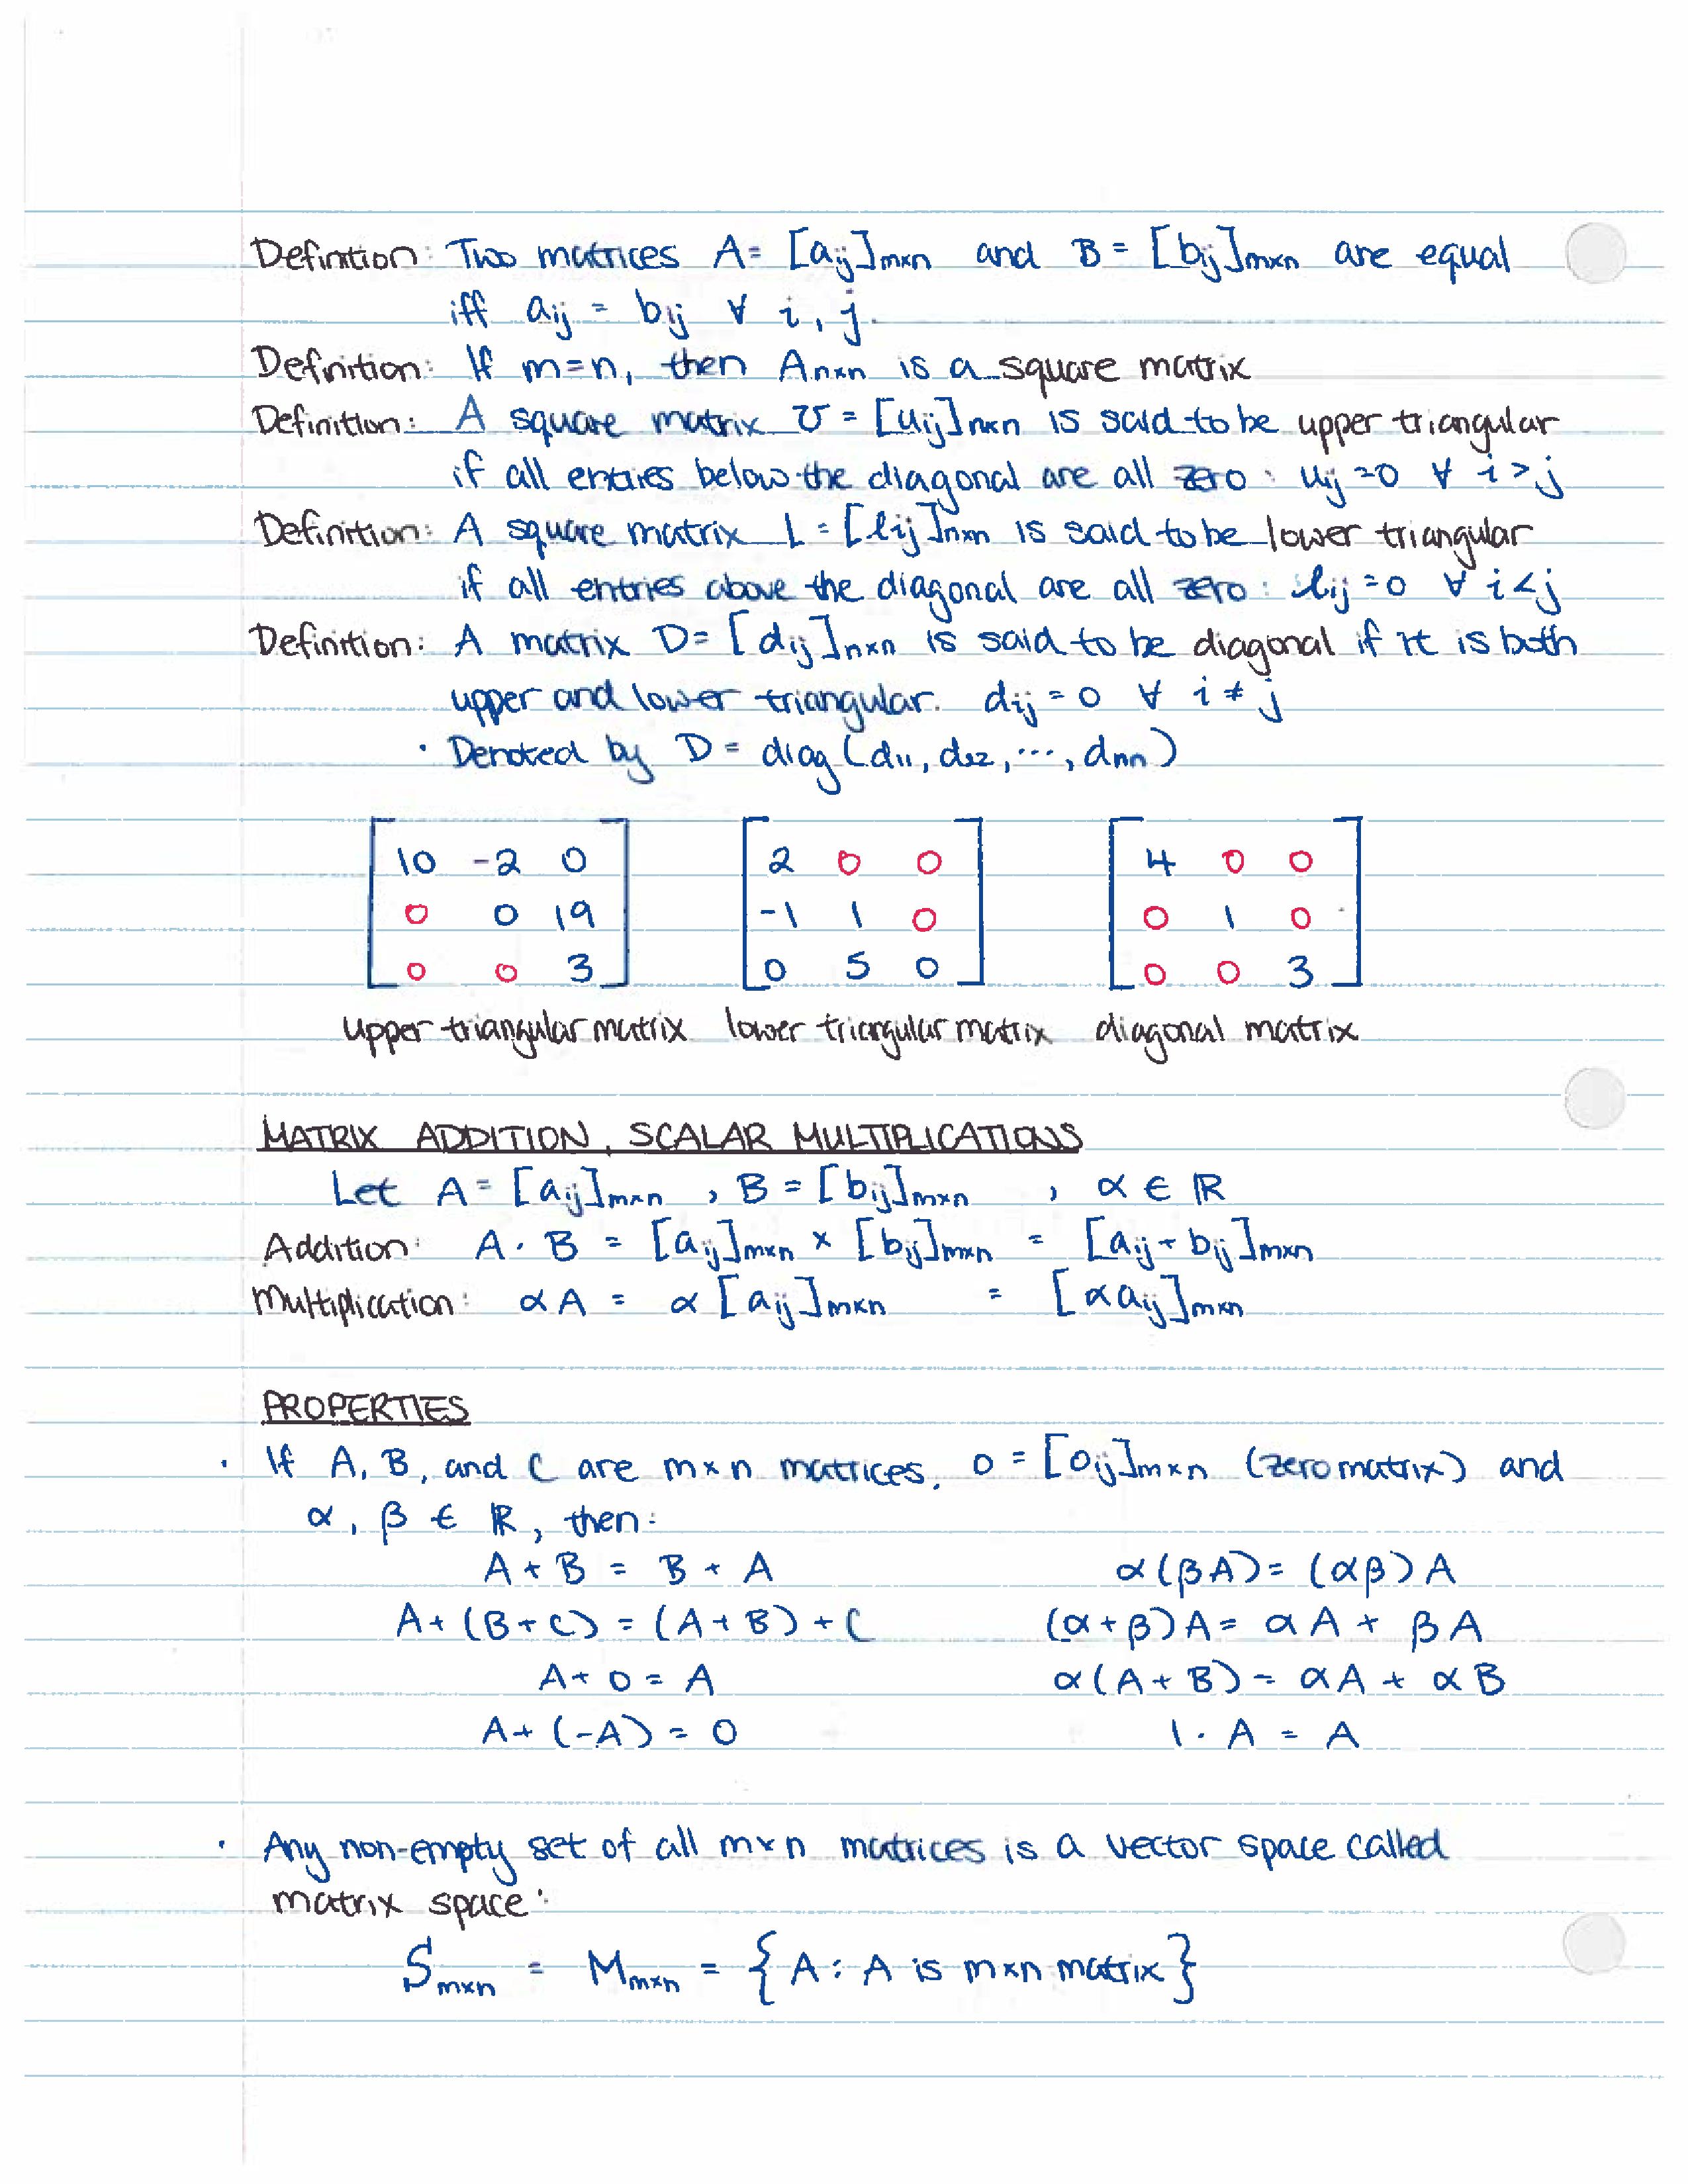 Definition: Two matrices A = [aij]m×n and B = [bij]m×n are equal
iff aij = bij ∀ i, j.
Definition: If m=n, then An×n is a square matrix
Definition: A square matrix U = [uij]n×n is said to be upper triangular
if all entries below the diagonal are all zero: uij = 0 ∀ i > j
Definition: A square matrix L = [lij]n×n is said to be lower triangular
if all entries above the diagonal are all zero: lij = 0 ∀ i < j
Definition: A matrix D = [dij]n×n is said to be diagonal if it is both
upper and lower triangular. dij = 0 ∀ i ≠ j
· Denoted by D = diag(d11, d22, ..., dnn)
10 -2 0 2 0 0 4 0 0
0 0 19 -1 1 0 0 1 0
0 0 3 0 5 0 0 0 3
upper triangular matrix lower triangular matrix diagonal matrix
MATRIX ADDITION, SCALAR MULTIPLICATIONS
Let A = [aij]m×n , B = [bij]m×n , α ∈ ℝ
Addition: A · B = [aij]m×n × [bij]m×n = [aij + bij]m×n
Multiplication: αA = α [aij]m×n = [αaij]m×n
PROPERTIES
· If A, B, and C are m×n matrices, 0 = [0ij]m×n (zero matrix) and
α, β ∈ ℝ, then:
A + B = B + A α(βA) = (αβ)A
A + (B + C) = (A + B) + C (α + β)A = αA + βA
A + 0 = A α(A + B) = αA + αB
A + (-A) = 0 1 · A = A
· Any non-empty set of all m×n matrices is a vector space called
matrix space:
Sm×n = Mm×n = {A : A is m×n matrix}